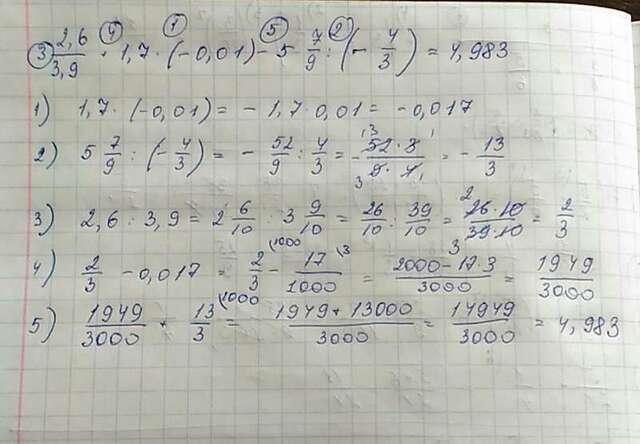 ③ 2,6/3,9 + 1,7 · (-0,01) - 5 7/9 : (- 4/3) = 4,983
④ ① ⑤ ②
1) 1,7 · (-0,01) = - 1,7 · 0,01 = - 0,017
2) 5 7/9 : (- 4/3) = - 52/9 : 4/3 = - 52 · 3/9 · 4 = - 13/3
3) 2,6 : 3,9 = 2 6/10 : 3 9/10 = 26/10 : 39/10 = 26 · 10/39 · 10 = 2/3
4) 2/3 - 0,017 = 2/3 - 17/1000 = 2000 - 17 · 3/3000 = 1949/3000
5) 1949/3000 + 13/3 = 1949 + 13000/3000 = 14949/3000 = 4,983